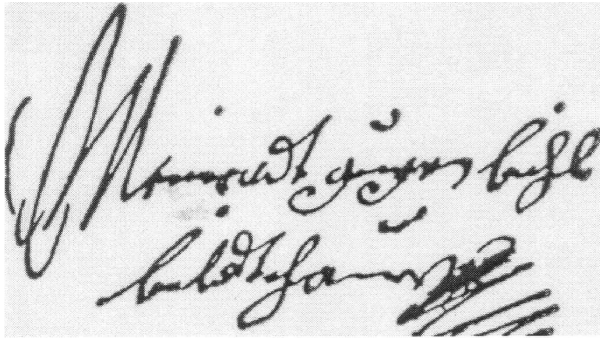 Meinradt gugen bichl
bildthauer